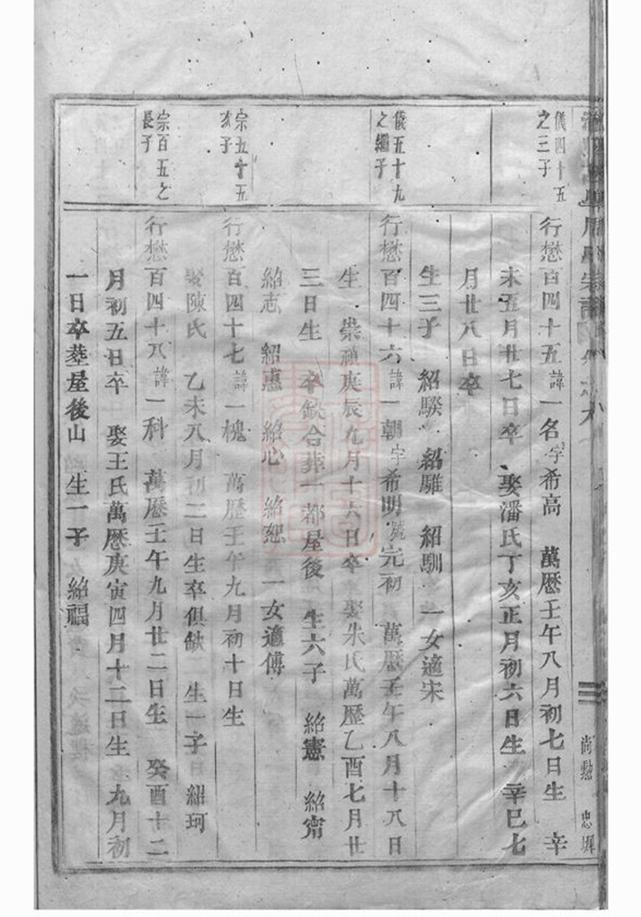 儀四十五
之三子
行懋百四十五諱一名字希高 萬曆壬午八月初七日生 辛
未五月廿七日卒 娶潘氏丁亥正月初六日生 辛巳七
月廿八日卒
生三子 紹騤 紹騅 紹馴 一女適宋
儀五十九
之繼子
行懋百四十六諱一朝字希明號完初 萬曆壬午八月十八日
生 崇禎庚辰九月十六日卒 娶朱氏萬歷乙酉七月廿
三日生 卒缺合葬一都屋後 生六子 紹憲 紹甯
紹志 紹憲 紹心 紹恕 一女適傅
宗五十五
次子
行懋百四十七諱一槐 萬歷壬午九月初十日生
娶陳氏 乙未八月初二日生卒俱缺 生一子 紹珂
宗百五之
長子
行懋百四十八諱一科 萬歷壬午九月廿二日生 癸酉十二
月初五日卒 娶王氏萬歷庚寅四月十二日生 九月初
一日卒葬屋後山 生一子 紹福
尚勲 忠墀